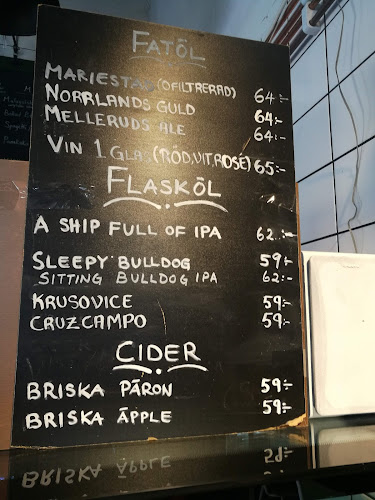 FATÖL
MARIESTAD (OFILTRERAD) 64:-
NORRLANDS GULD 64:-
MELLERUDS ALE 64:-
VIN 1 GLAS (RÖD, VIT, ROSÉ) 65:-
FLASKÖL
A SHIP FULL OF IPA 62:-
SLEEPY BULLDOG 59:-
SITTING BULLDOG IPA 62:-
KRUSOVICE 59:-
CRUZCAMPO 59:-
CIDER
BRISKA PÄRON 59:-
BRISKA ÄPPLE 59:-